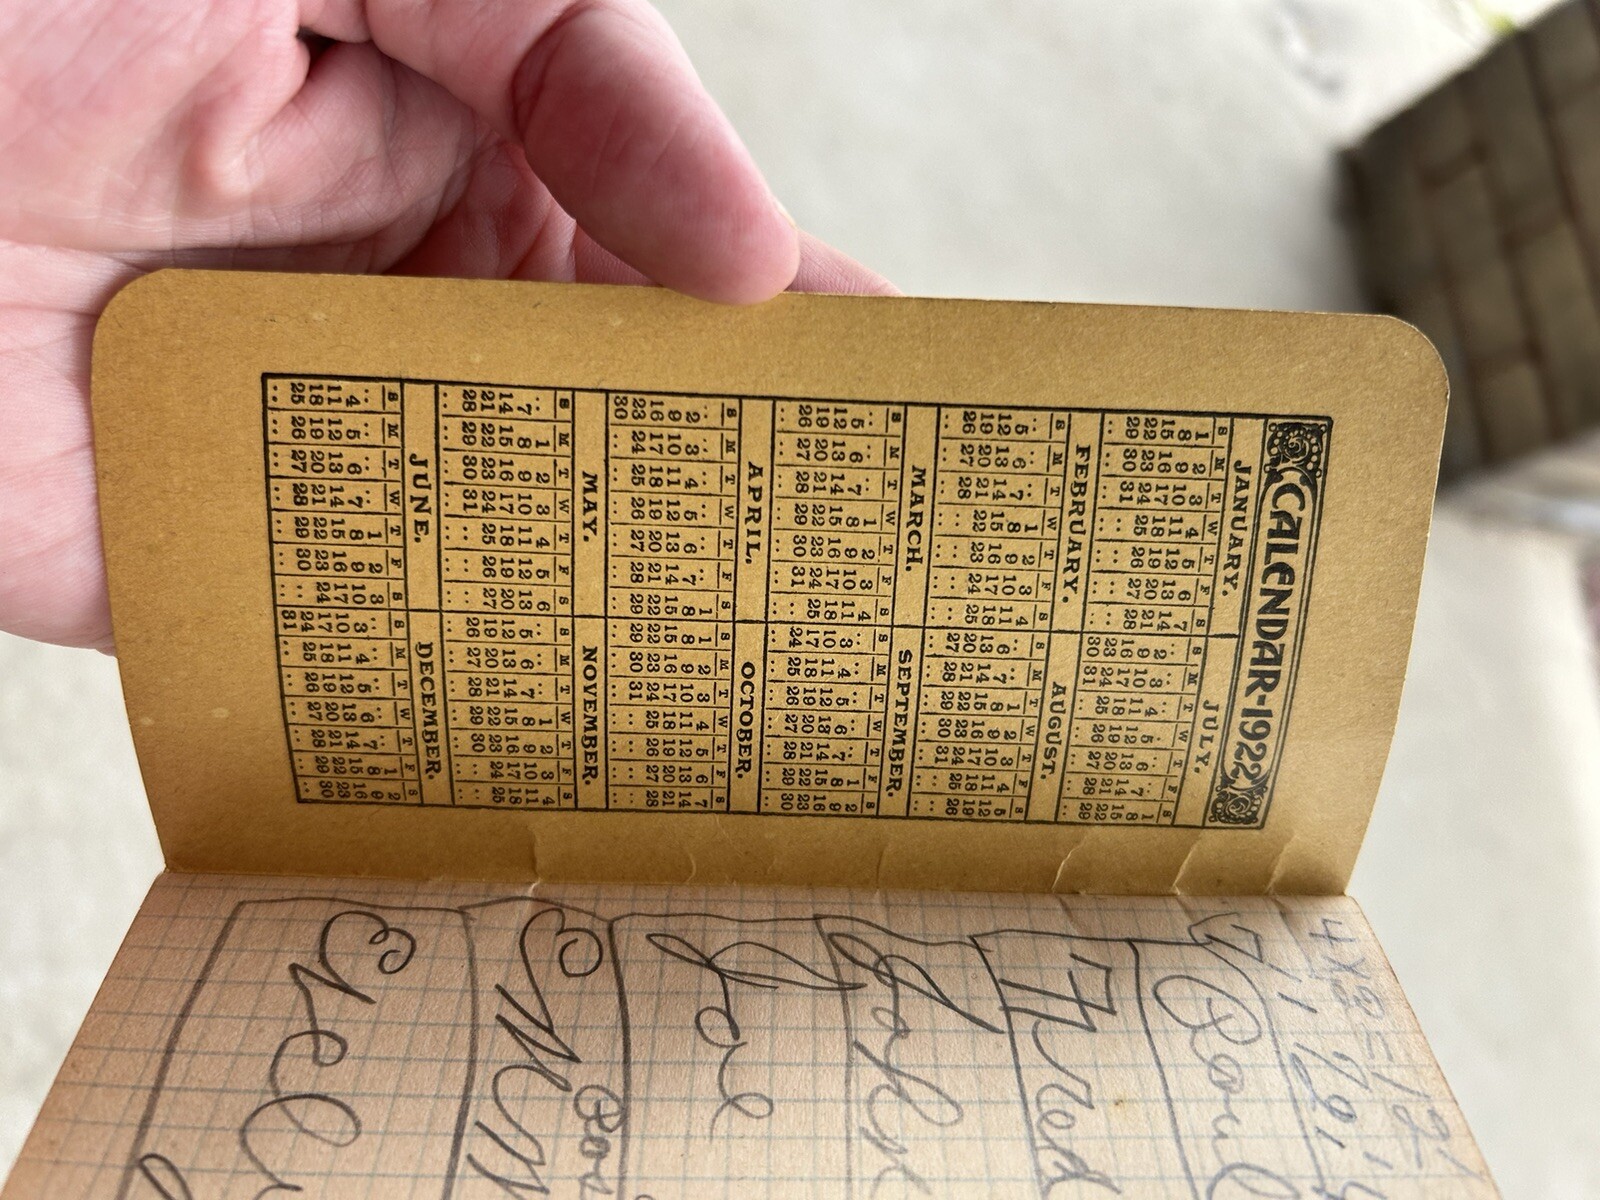 CALENDAR-1922
JANUARY. JULY.
S M T W T F S S M T W T F S
1 2 3 4 5 6 7 .. .. .. .. .. .. 1
8 9 10 11 12 13 14 2 3 4 5 6 7 8
15 16 17 18 19 20 21 9 10 11 12 13 14 15
22 23 24 25 26 27 28 16 17 18 19 20 21 22
29 30 31 .. .. .. .. 23 24 25 26 27 28 29
30 31
FEBRUARY. AUGUST.
S M T W T F S S M T W T F S
.. .. .. 1 2 3 4 .. .. 1 2 3 4 5
5 6 7 8 9 10 11 6 7 8 9 10 11 12
12 13 14 15 16 17 18 13 14 15 16 17 18 19
19 20 21 22 23 24 25 20 21 22 23 24 25 26
26 27 28 .. .. .. .. 27 28 29 30 31 .. ..
MARCH. SEPTEMBER.
S M T W T F S S M T W T F S
.. .. .. 1 2 3 4 .. .. .. .. .. 1 2
5 6 7 8 9 10 11 3 4 5 6 7 8 9
12 13 14 15 16 17 18 10 11 12 13 14 15 16
19 20 21 22 23 24 25 17 18 19 20 21 22 23
26 27 28 29 30 31 .. 24 25 26 27 28 29 30
APRIL. OCTOBER.
S M T W T F S S M T W T F S
.. .. .. .. .. .. 1 1 2 3 4 5 6 7
2 3 4 5 6 7 8 8 9 10 11 12 13 14
9 10 11 12 13 14 15 15 16 17 18 19 20 21
16 17 18 19 20 21 22 22 23 24 25 26 27 28
23 24 25 26 27 28 29 29 30 31 .. .. .. ..
30
MAY. NOVEMBER.
S M T W T F S S M T W T F S
.. 1 2 3 4 5 6 .. .. .. 1 2 3 4
7 8 9 10 11 12 13 5 6 7 8 9 10 11
14 15 16 17 18 19 20 12 13 14 15 16 17 18
21 22 23 24 25 26 27 19 20 21 22 23 24 25
28 29 30 31 .. .. .. 26 27 28 29 30 .. ..
JUNE. DECEMBER.
S M T W T F S S M T W T F S
.. .. .. .. 1 2 3 .. .. .. .. .. 1 2
4 5 6 7 8 9 10 3 4 5 6 7 8 9
11 12 13 14 15 16 17 10 11 12 13 14 15 16
18 19 20 21 22 23 24 17 18 19 20 21 22 23
25 26 27 28 29 30 .. 24 25 26 27 28 29 30
31
4x3=12
Paul
Fred
John
Joe